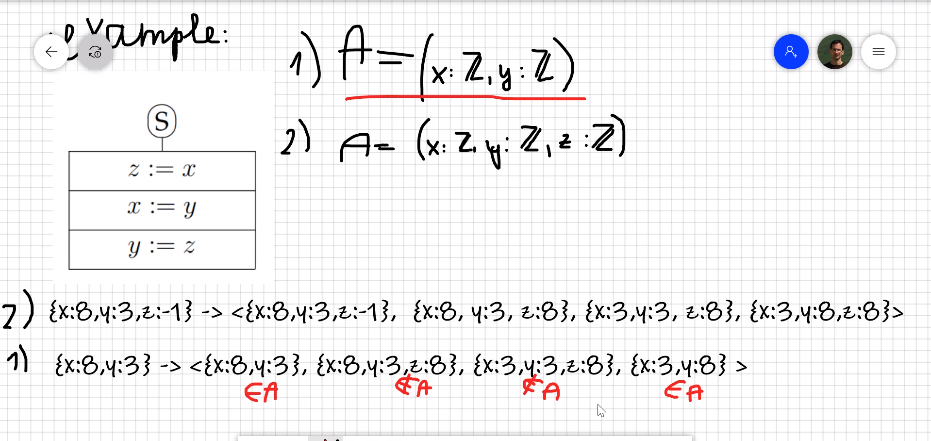 example:
1) A=(x:ℤ,y:ℤ)
2) A= (x:ℤ, y:ℤ, z:ℤ)
S
z := x
x := y
y := z
2) {x:8,y:3,z:-1} -> <{x:8,y:3,z:-1}, {x:8, y:3, z:8}, {x:3,y:3, z:8}, {x:3,y:8,z:8}>
1) {x:8,y:3} -> <{x:8,y:3}, {x:8,y:3,z:8}, {x:3,y:3,z:8}, {x:3,y:8} >
∈A ∉A ∉A ∈A